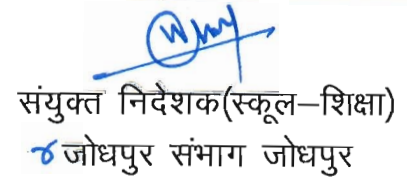 संयुक्त निदेशक(स्कूल–शिक्षा)
जोधपुर संभाग जोधपुर